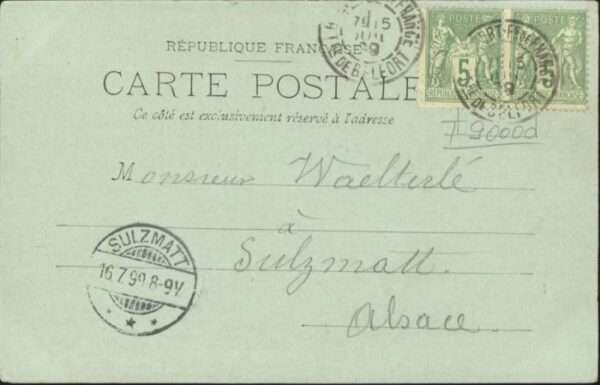 RÉPUBLIQUE FRANÇAISE
CARTE POSTALE
Ce côté est exclusivement réservé à l'adresse
POSTE
POSTE
5
FRANCE
15
JUIL
99
TRE DE BELFORT
15
99
TRE DE BELFORT
90000
Monsieur Waelterlé
à
Sulzmatt.
Alsace.
SULZMATT
16.7.99.8-9V
* * *